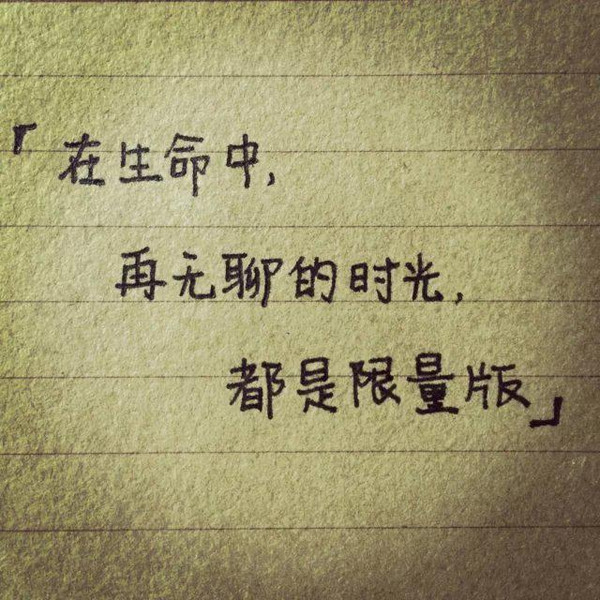 「在生命中,
再无聊的时光,
都是限量版」